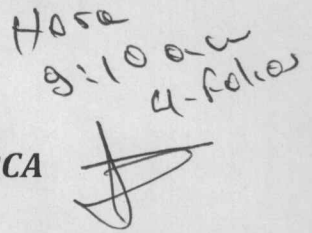 Hora
9:10 am
4-Folios
CA